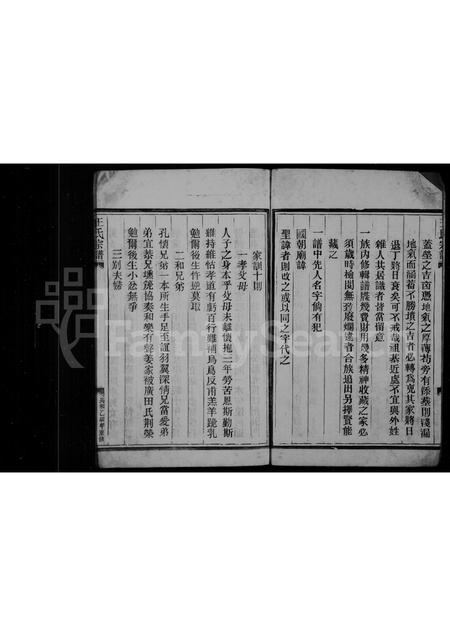 蓋塋之吉凶憑地氣之厚薄坊旁有添葬則殘漏
地氣而誦葡不勝墳之吉者必轉為寃其家將日
退丁將日衰矣可不戒哉祖墓近處不宜與外姓
雜人共居識者皆當留意
一族內修輯譜牒幾費財用幾多精神收藏之家必
須歲時檢閱無致廢爛違者合族追出另擇賢能
藏之
一譜中先人名字倘有犯
國朝廟諱
聖諱者則改之或以同之字代之
家訓十則
一孝父母
人子之身本乎父母未離懷抱三年勞苦恩斯勤斯
難持維怙孝道有虧百行難補烏鳥反甫羔羊跪乳
勉爾後生忤逆莫取
二和兄弟
孔懷兄弟一本所生手足至誼羽翼深情兄當愛弟
弟宜恭兄壎篪協奏和樂有聲姜家被廣田氏荊榮
勉爾後生小忿無爭
三別夫婦
王氏宗譜
FamilySearch